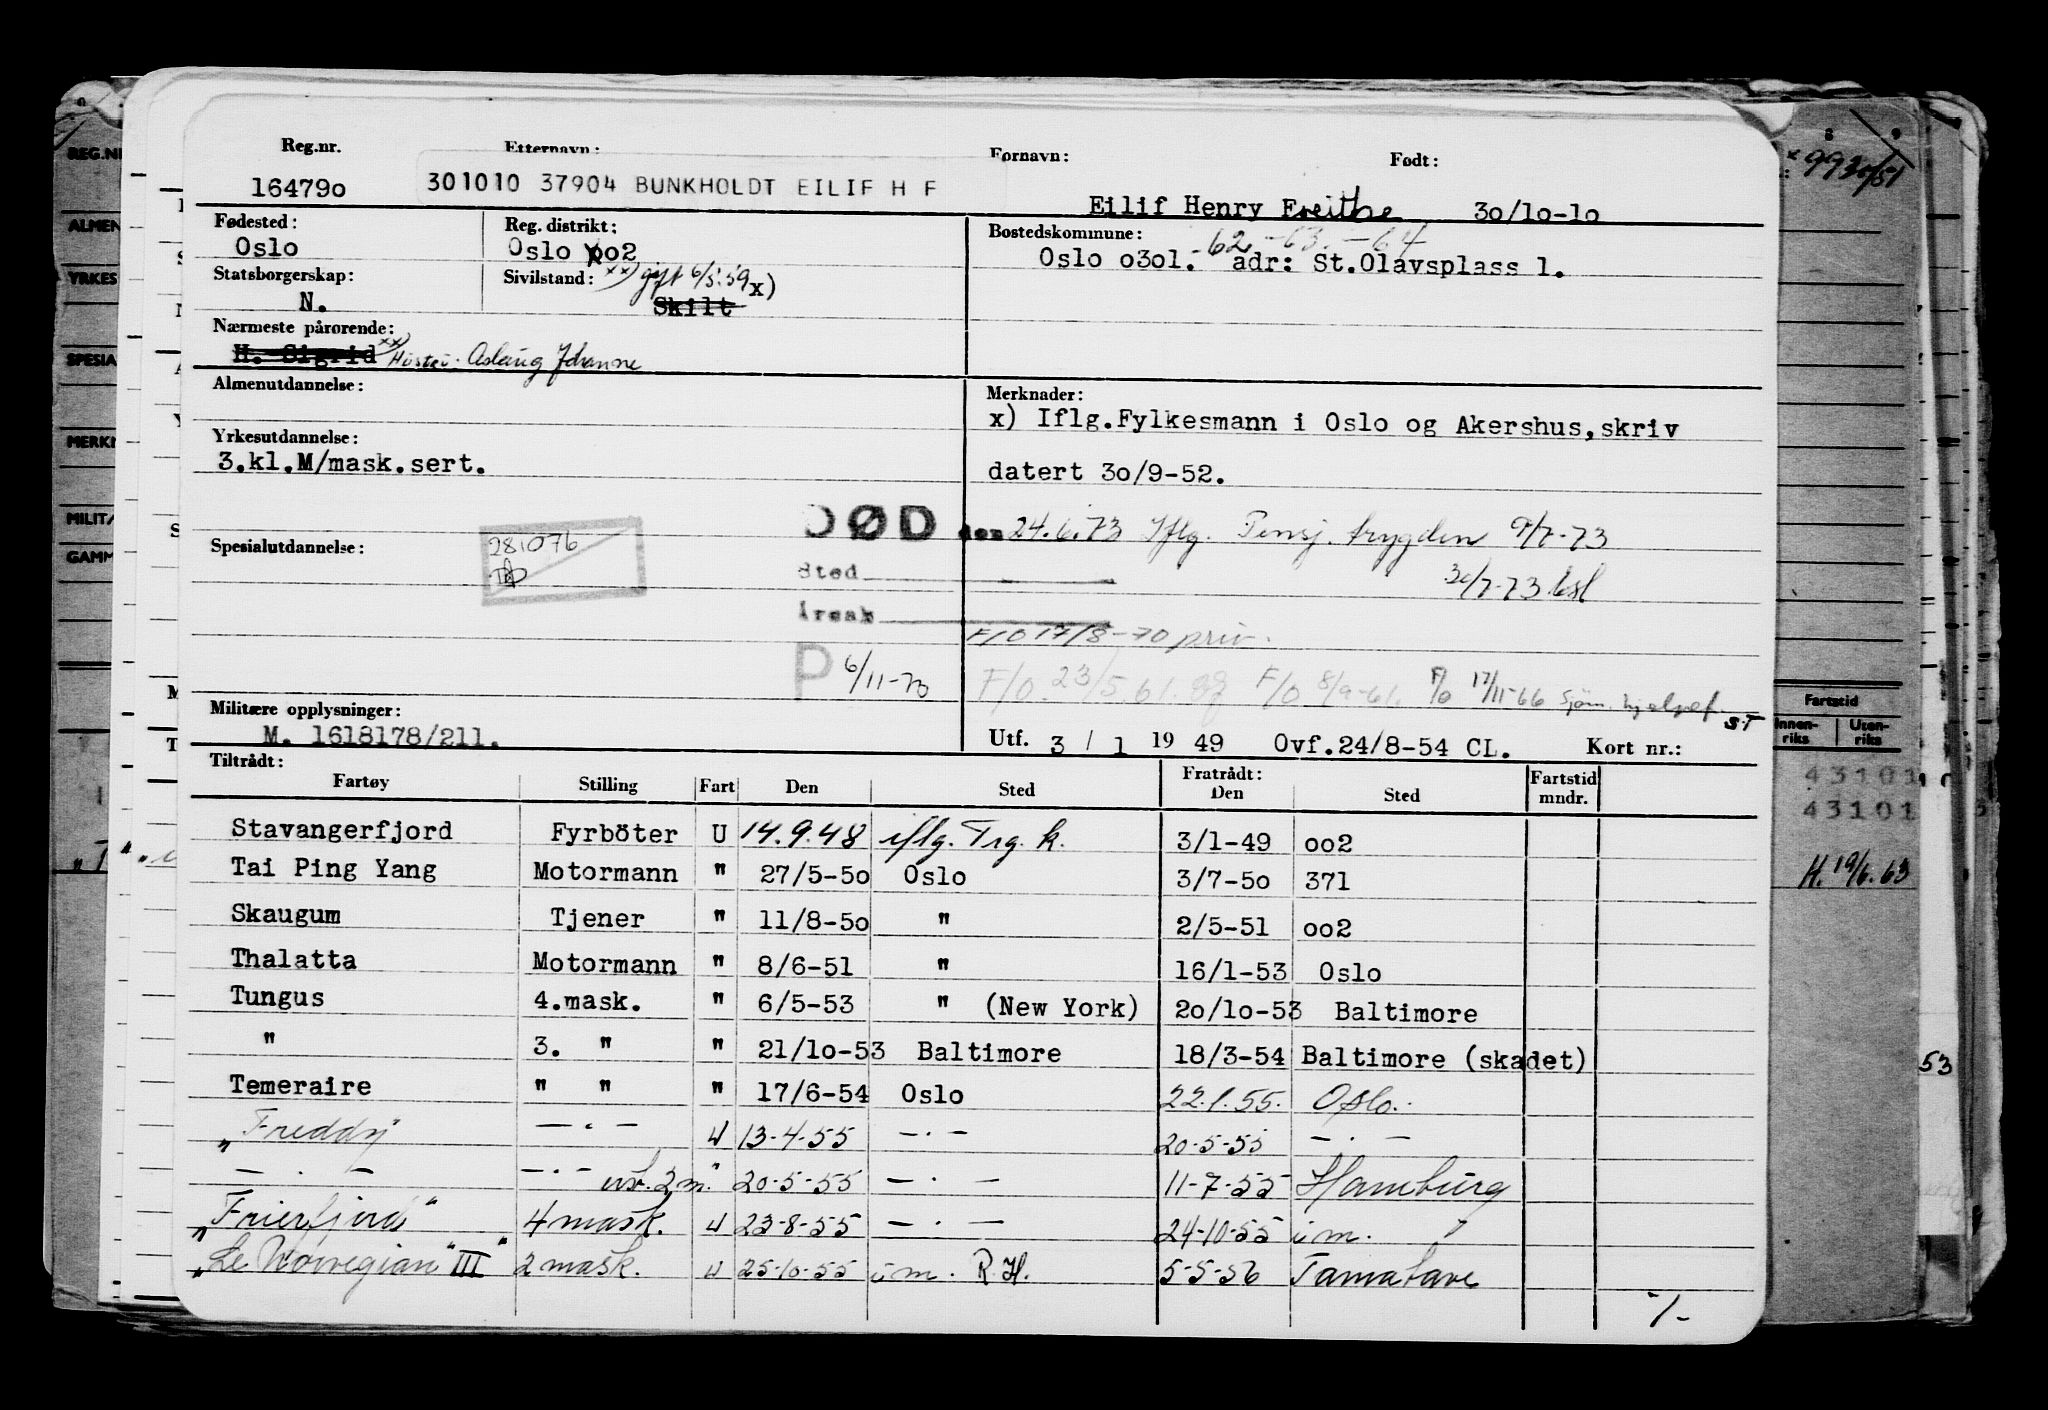 Reg.nr.
Etternavn:
Fornavn:
Født:
16479o
301010 37904 BUNKHOLDT EILIF H F
Eilif Henry Freithe
3o/1o-1o
Fødested:
Oslo
Reg. distrikt:
Oslo oo2
Bostedskommune: -62.-63.-64
Oslo o3o1. adr: St.Olavsplass 1.
Statsborgerskap:
N.
Sivilstand: xx) gift 6/5.59 x)
Skilt
Nærmeste pårørende:
H. Sigrid xx) Hustru: Aslaug Johanne
Almenutdannelse:
Merknader:
x) Iflg.Fylkesmann i Oslo og Akershus,skriv
datert 3o/9-52.
Yrkesutdannelse:
3.kl.M/mask.sert.
DØD den 24.6.73 Iflg. Pensj. trygden 9/7-73
30/7-73 bsl
Spesialutdannelse:
281076
Sted
Årsak
F/O 17/8-70 priv.
P 6/11-70
F/O 23/5.61. F/O 8/9-61. F/O 17/11-66 Sjøm. hjelpef.
ST
Militære opplysninger:
M. 1618178/211.
Utf. 3 / 1 19 49 Ovf.24/8-54 CL. Kort nr.:
Tiltrådt:
Fratrådt:
Fartøy Stilling Fart Den Sted Den Sted Fartstid mndr.
Stavangerfjord Fyrböter U 14.9.48 iflg. Trg. k. 3/1-49 oo2
Tai Ping Yang Motormann " 27/5-5o Oslo 3/7-5o 371
Skaugum Tjener " 11/8-5o " 2/5-51 oo2
Thalatta Motormann " 8/6-51 " 16/1-53 Oslo
Tungus 4.mask. " 6/5-53 " (New York) 2o/1o-53 Baltimore
" 3. " " 21/1o-53 Baltimore 18/3-54 Baltimore (skadet)
Temeraire " " " 17/6-54 Oslo 22.1.55. Oslo.
"Freddy" -.- U 13-4-55 -.- 20-5-55 -.-
-.- -.- 2 m. " 20-5-55 -.- 11-7-55 Hamburg
"Frierfjord" 4 mask. U 23-8-55 -.- 24-10-55 i m.
"Le Norvegian" III 2 mask. U 25-10-55 i m. R.H. 5-5-56 Tamatave
-/-
REG.NR
ALMEN
YRKES
SPESIA
MERKN
MILIT
GAMM
8 9
x 9930/51
Fartstid
Innen-riks Uten-riks
43101
43101
H. 19/6.63
53